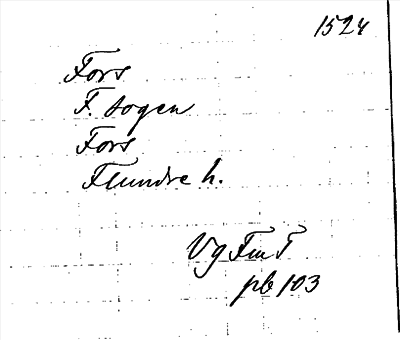 1524
Fors
F. sogen
Fors
Flundre h.
Vg FmT
pb 103